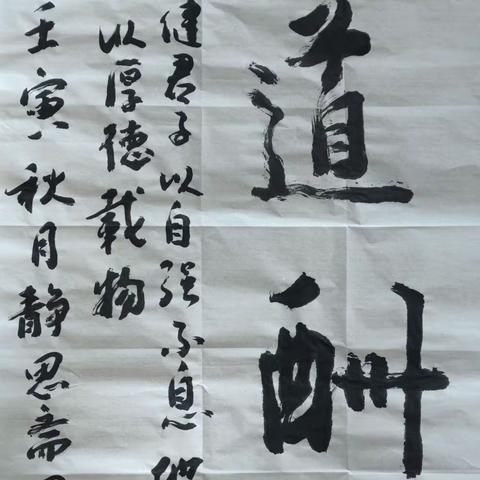 道酬
健君子以自强不息
以厚德載物
壬寅秋月静思斋